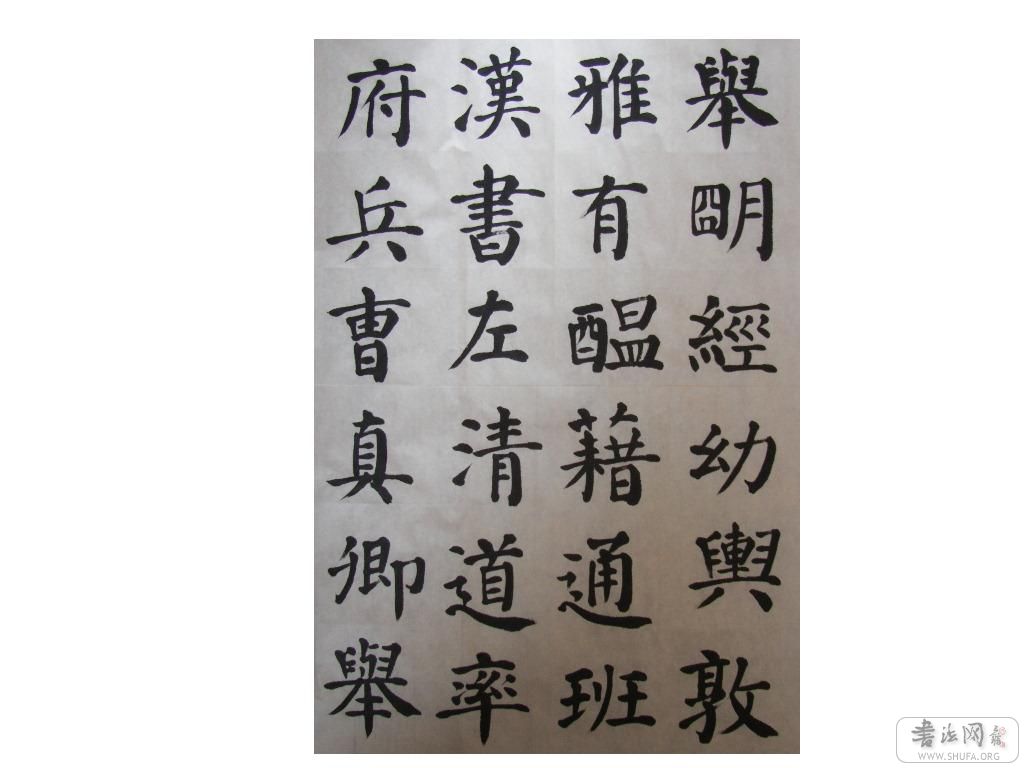 舉明經幼輿敦
雅有醞藉通班
漢書左清道率
府兵曹真卿舉
書法网
WWW.SHUFA.ORG